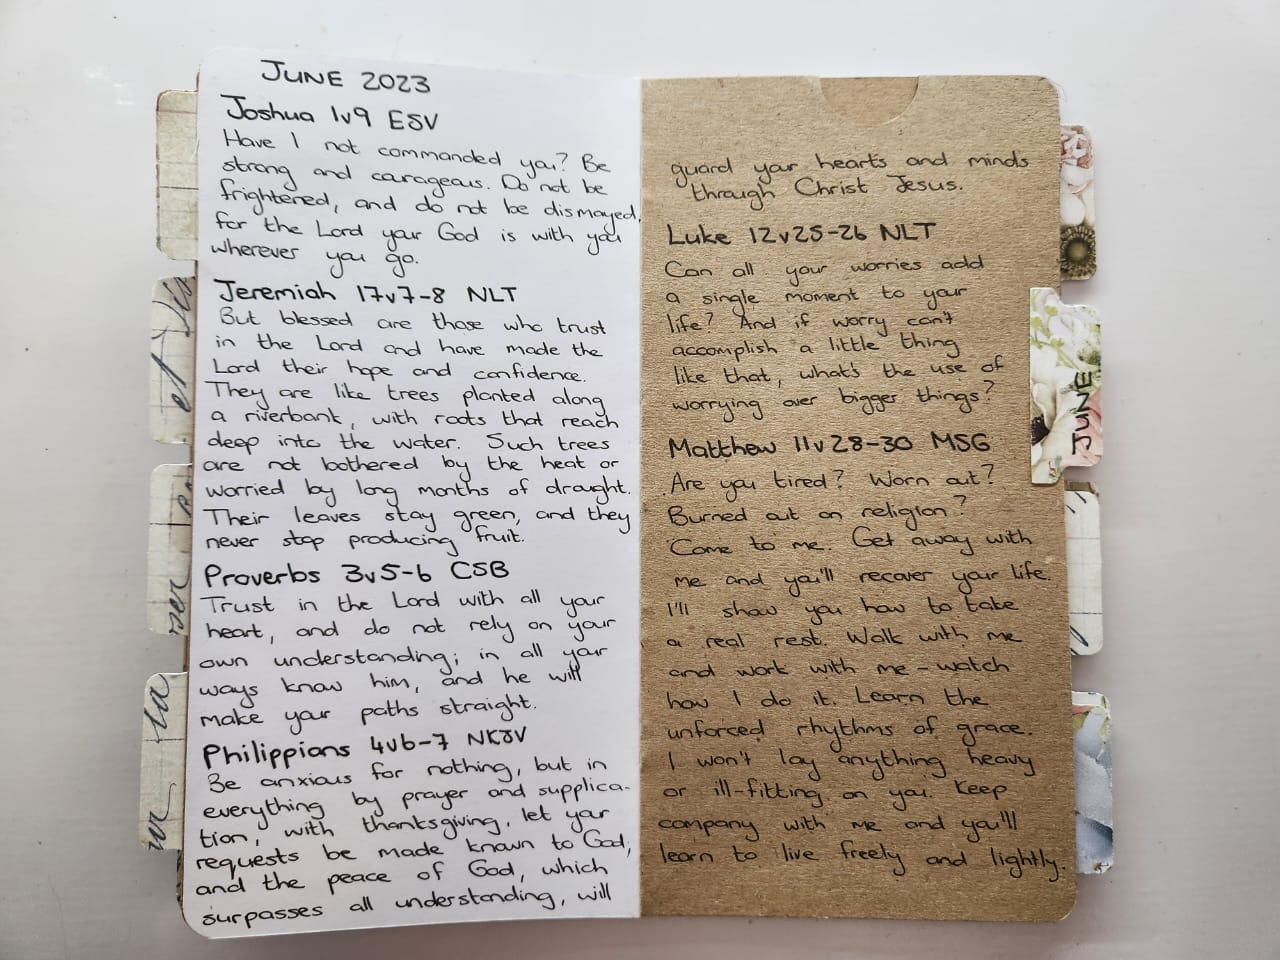 JUNE 2023
Joshua 1v9 ESV
Have I not commanded you? Be
strong and courageous. Do not be
frightened, and do not be dismayed,
for the Lord your God is with you
wherever you go.
Jeremiah 17v7-8 NLT
But blessed are those who trust
in the Lord and have made the
Lord their hope and confidence.
They are like trees planted along
a riverbank, with roots that reach
deep into the water. Such trees
are not bothered by the heat or
worried by long months of drought.
Their leaves stay green, and they
never stop producing fruit.
Proverbs 3v5-6 CSB
Trust in the Lord with all your
heart, and do not rely on your
own understanding; in all your
ways know him, and he will
make your paths straight.
Philippians 4v6-7 NKJV
Be anxious for nothing, but in
everything by prayer and supplica-
tion, with thanksgiving, let your
requests be made known to God,
and the peace of God, which
surpasses all understanding, will
guard your hearts and minds
through Christ Jesus.
Luke 12v25-26 NLT
Can all your worries add
a single moment to your
life? And if worry can't
accomplish a little thing
like that, what's the use of
worrying over bigger things?
Matthew 11v28-30 MSG
Are you tired? Worn out?
Burned out on religion?
Come to me. Get away with
me and you'll recover your life.
I'll show you how to take
a real rest. Walk with me
and work with me - watch
how I do it. Learn the
unforced rhythms of grace.
I won't lay anything heavy
or ill-fitting on you. Keep
company with me and you'll
learn to live freely and lightly.
JUNE